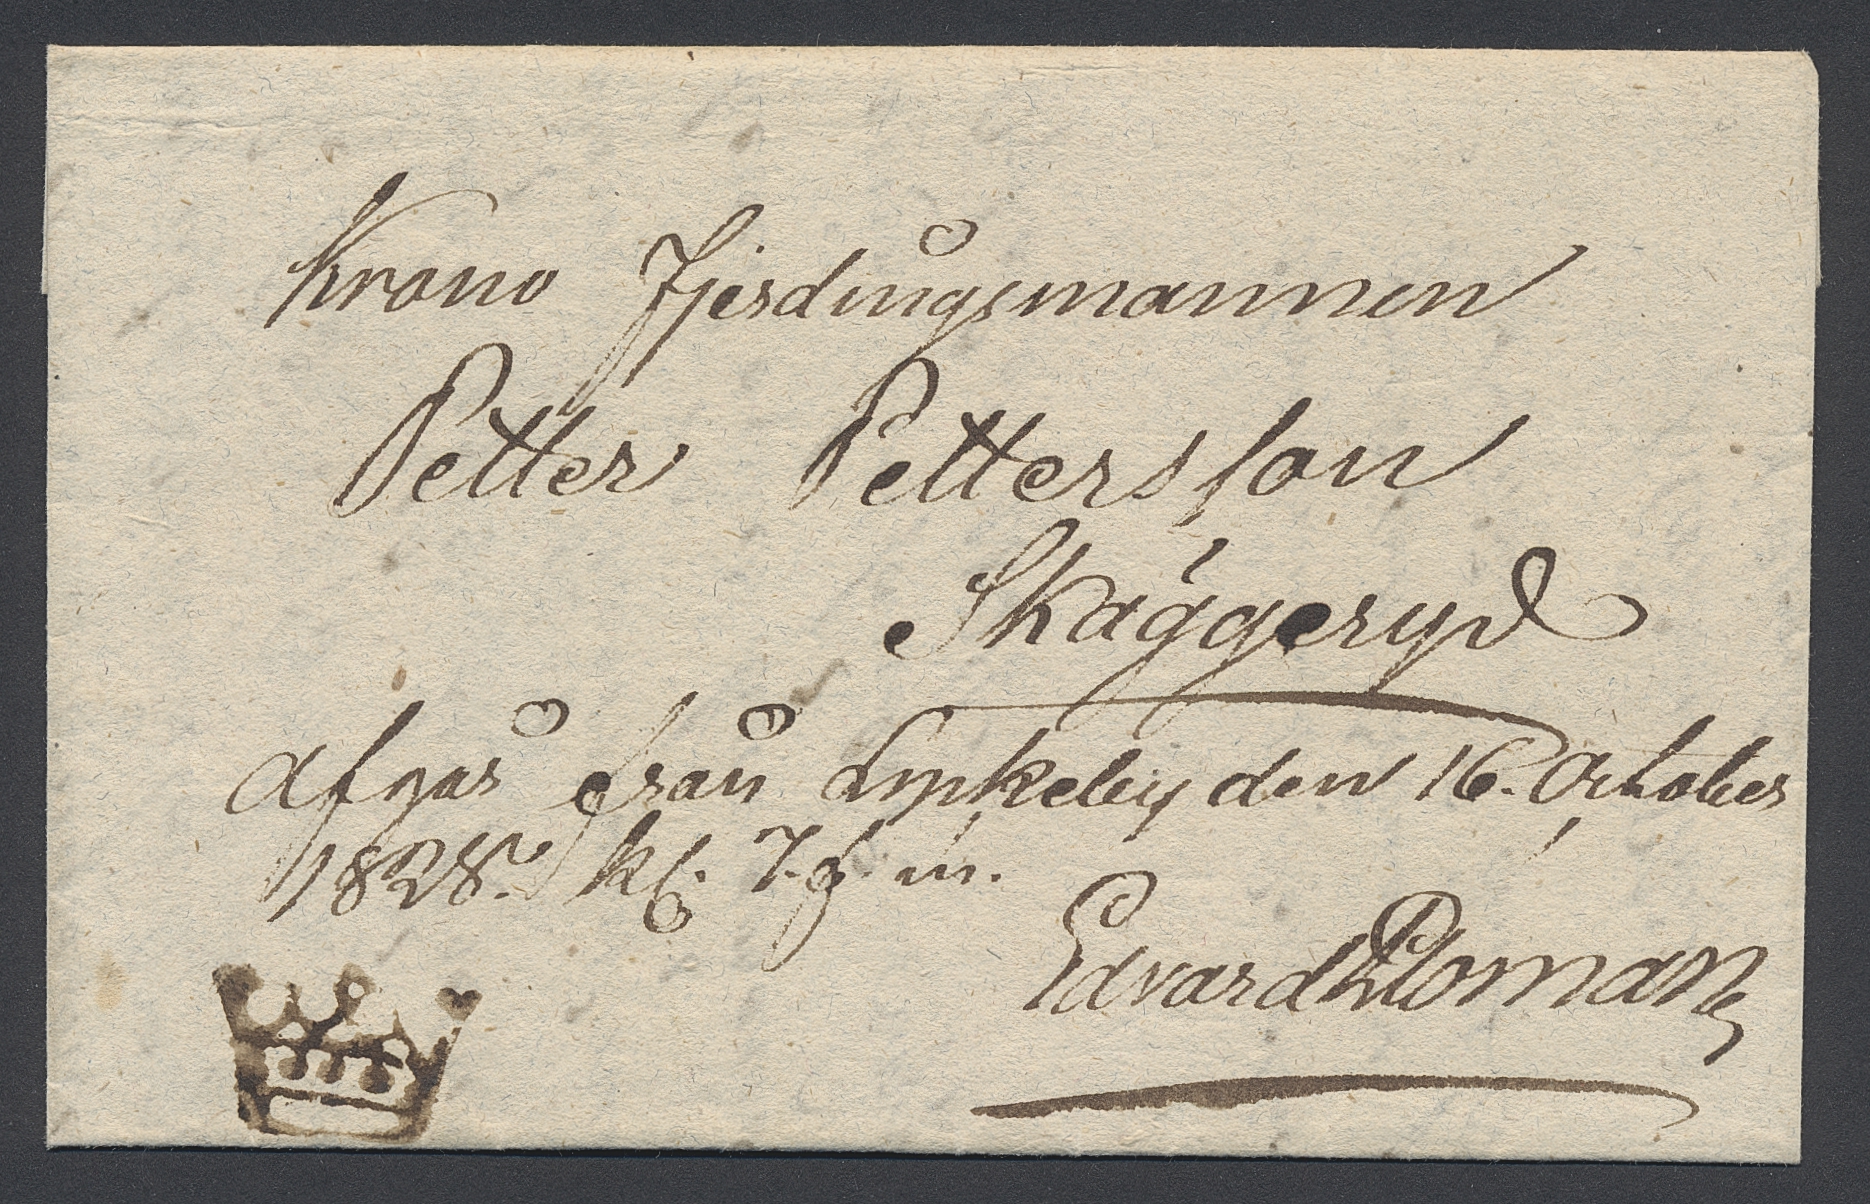 Krono Fjerdingsmannen
Petter Pettersson
Skäggeryd
Afgår från Lyckeby den 16. October
1828. kl. 7. f. m.
Edvard Ploman